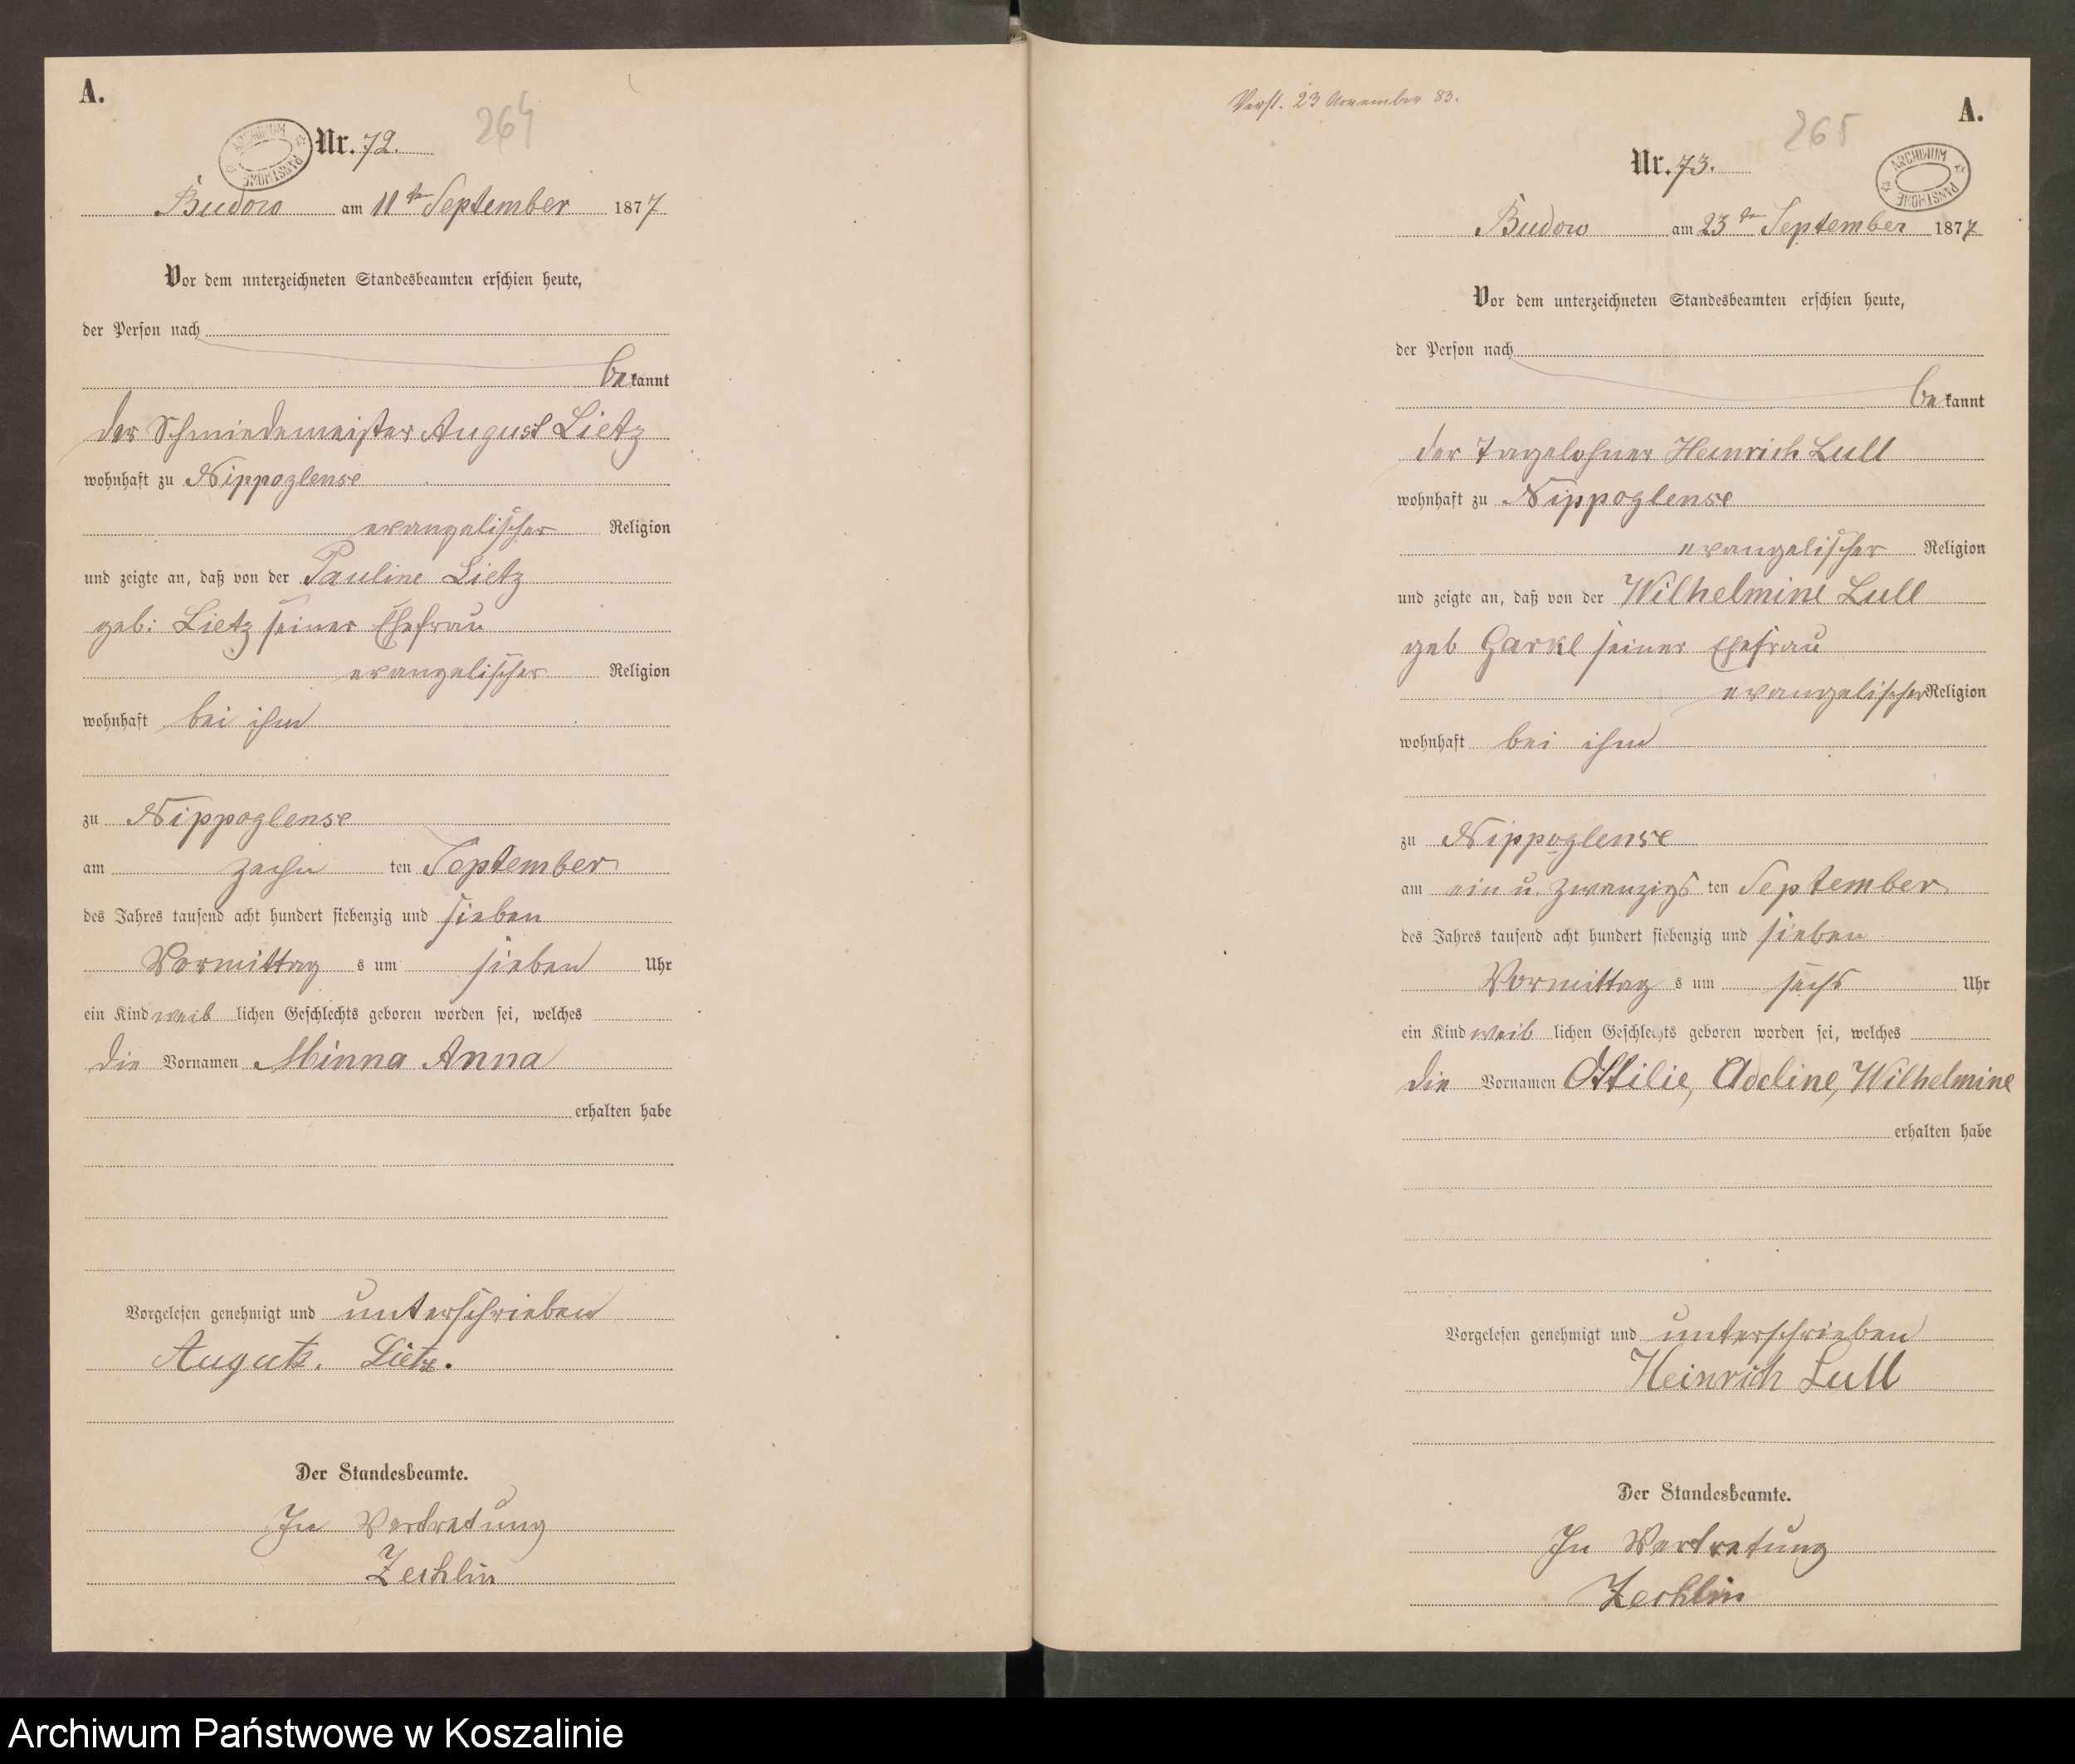 A.
264
ARCHIWUM PAŃSTWOWE
Nr. 72.
Budow am 11ten September 1877
Vor dem unterzeichneten Standesbeamten erschien heute,
der Person nach
bekannt
der Schmiedemeister August Lietz
wohnhaft zu Nippoglense
evangelischer Religion
und zeigte an, daß von der Pauline Lietz
geb: Lietz seiner Ehefrau
evangelischer Religion
wohnhaft bei ihm
zu Nippoglense
am zehn ten September
des Jahres tausend acht hundert siebenzig und sieben
Vormittag s um sieben Uhr
ein Kind weib lichen Geschlechts geboren worden sei, welches
die Vornamen Minna Anna
erhalten habe
Vorgelesen genehmigt und unterschrieben
Augutz. Lietz.
Der Standesbeamte.
In Vertretung
Zechlin
Verst. 23 November 83.
A.
265
ARCHIWUM PAŃSTWOWE
Nr. 73.
Budow am 23ten September 1877
Vor dem unterzeichneten Standesbeamten erschien heute,
der Person nach
bekannt
der Tagelohner Heinrich Lull
wohnhaft zu Nippoglense
evangelischer Religion
und zeigte an, daß von der Wilhelmine Lull
geb Garkl seiner Ehefrau
evangelischer Religion
wohnhaft bei ihm
zu Nippoglense
am ein u. zwanzigs ten September
des Jahres tausend acht hundert siebenzig und sieben
Vormittag s um sechs Uhr
ein Kind weib lichen Geschlechts geboren worden sei, welches
die Vornamen Ottilie, Adeline, Wilhelmine
erhalten habe
Vorgelesen genehmigt und unterschrieben
Heinrich Lull
Der Standesbeamte.
In Vertretung
Zechlin
Archiwum Państwowe w Koszalinie